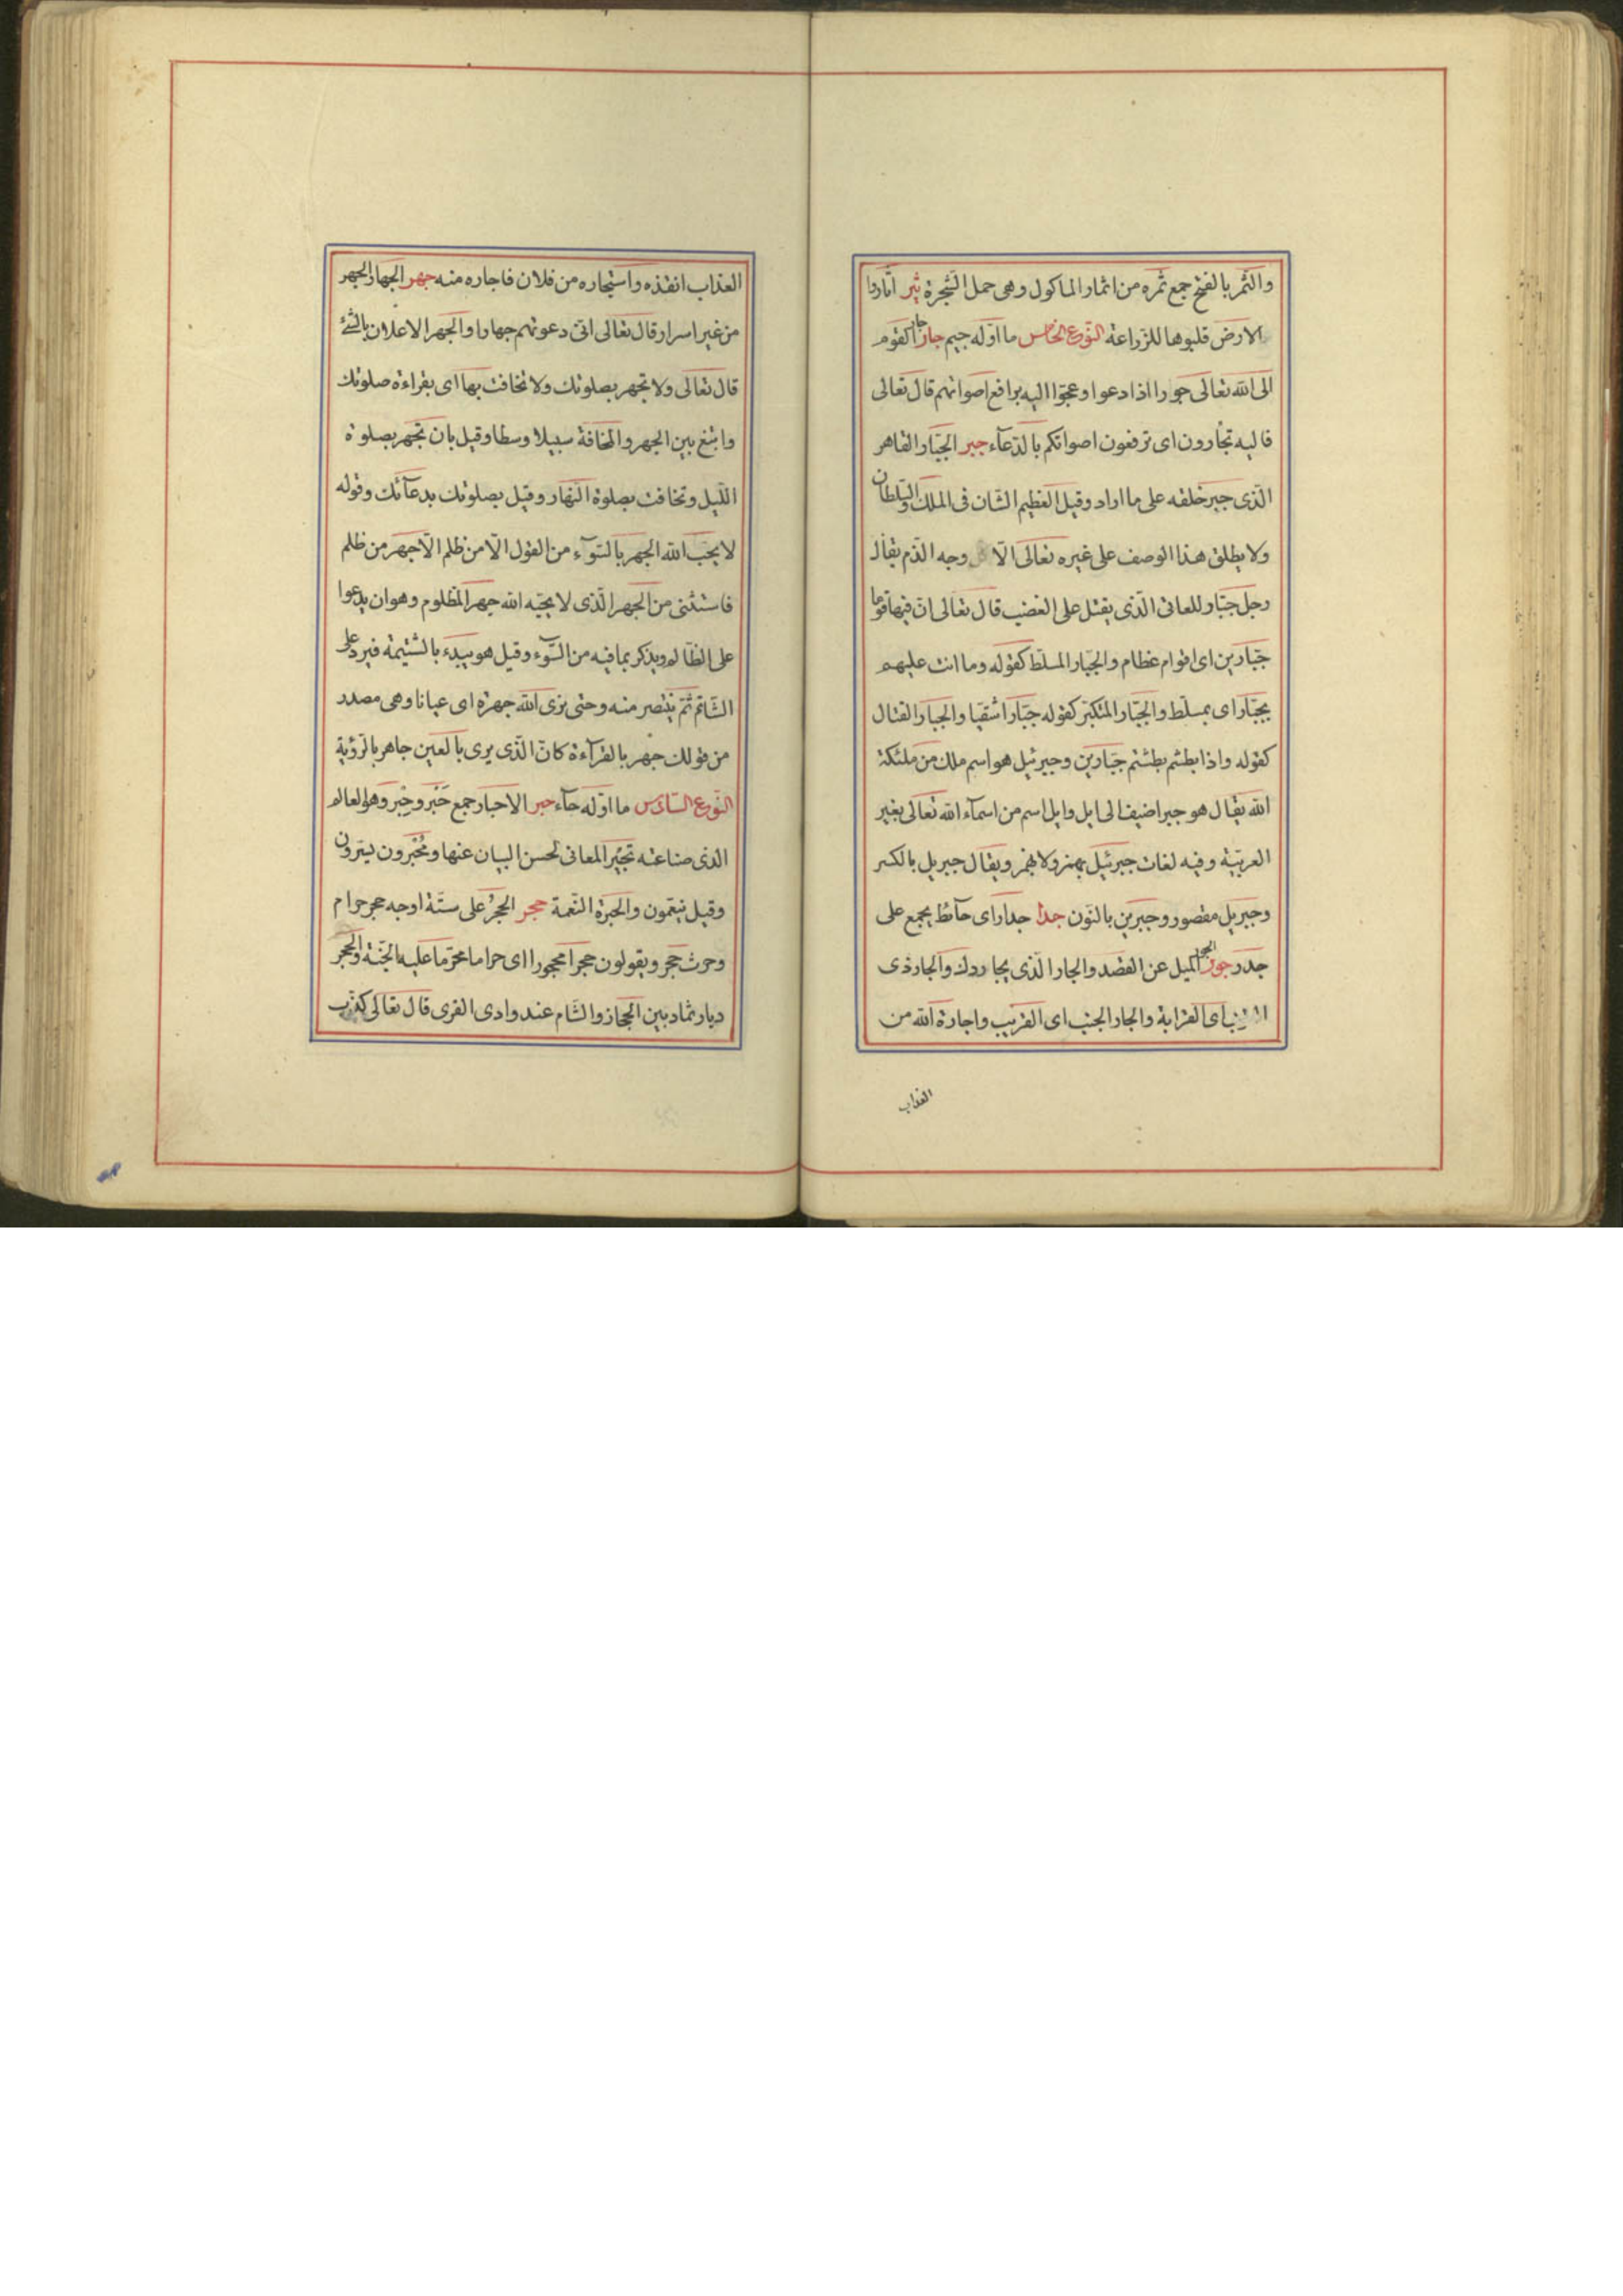 والثمر بالفتح جمع ثمره من اثمار الماكول وهى حمل الشجرة ثير اثاروا
الارض قلبوها للزراعة النوع الخامس ما اوله جيم جار جار القوم
الى الله تعالى جورا اذا دعوا وعجوا اليه برافع اصواتهم قال تعالى
فاليه تجأرون اى ترفعون اصواتكم بالدعآء جبر الجبار القاهر
الذى جبر خلقه على ما اراد وقيل العظيم الشان فى الملك والسلطان
ولا يطلق هذا الوصف على غيره تعالى الا وجه الذم يقال
رجل جبار للعاتى الذى يقتل على الغضب قال تعالى ان فيها قوما
جبارين اى اقوام عظام والجبار المسلط كقوله وما انت عليهم
بجبار اى بمسلط والجبار المتكبر كقوله جبارا شقيا والجبار القتال
كقوله واذا بطشتم بطشتم جبارين وجبرئيل هو اسم ملك من ملئكة
الله يقال هو جبر اضيف الى ايل وايل اسم من اسمآء الله تعالى بغير
العربية وفيه لغات جبرئيل بهمز ولا بهمز ويقال جبريل بالكسر
وجبريل مقصور وجبرين بالنون جدر جدار اى حآئط يجمع على
جدر جور الجور الميل عن القصد والجار الذى يجاورك والجار ذى
اى القرابة والجار الجنب اى الغريب واجارة الله من
العذاب
العذاب انقذه واستجاره من فلان فاجاره منه جهر الجهار الجهر
من غير اسرار قال تعالى انى دعوتهم جهارا والجهر الاعلان بالشئ
قال تعالى ولا تجهر بصلوتك ولا تخافت بها اى بقراءة صلوتك
وابتغ بين الجهر والمخافة سبيلا وسطا وقيل بان تجهر بصلوة
الليل وتخافت بصلوة النهار وقيل بصلوتك بدعآئك وقوله
لا يحب الله الجهر بالسوٓء من القول الا من ظلم الا جهر من ظلم
فاستثنى من الجهر الذى لا يحبه الله جهر المظلوم وهو ان يدعوا
على الظالم ويذكر بما فيه من السوٓء وقيل هو يبدء بالشتيمة فيرد على
الشاتم ثم ينتصر منه وحتى نرى الله جهرة اى عيانا وهى مصدر
من قولك جهر بالقرآءة كان الذى يرى بالعين جاهر بالرؤية
النوع السادس ما اوله حآء حبر الاحبار جمع حَبر وحِبر وهو العالم
الذى صناعته تحبير المعانى لحسن البيان عنها وتُحبرون يسرون
وقيل ينعمون والحبرة النعمة حجر الحجر على ستة اوجه حجر حرام
وحرث حجر ويقولون حجرا محجورا اى حراما محرما عليه الجنة والحجر
ديار ثماد بين الحجاز والشام عند وادى القرى قال تعالى كذب